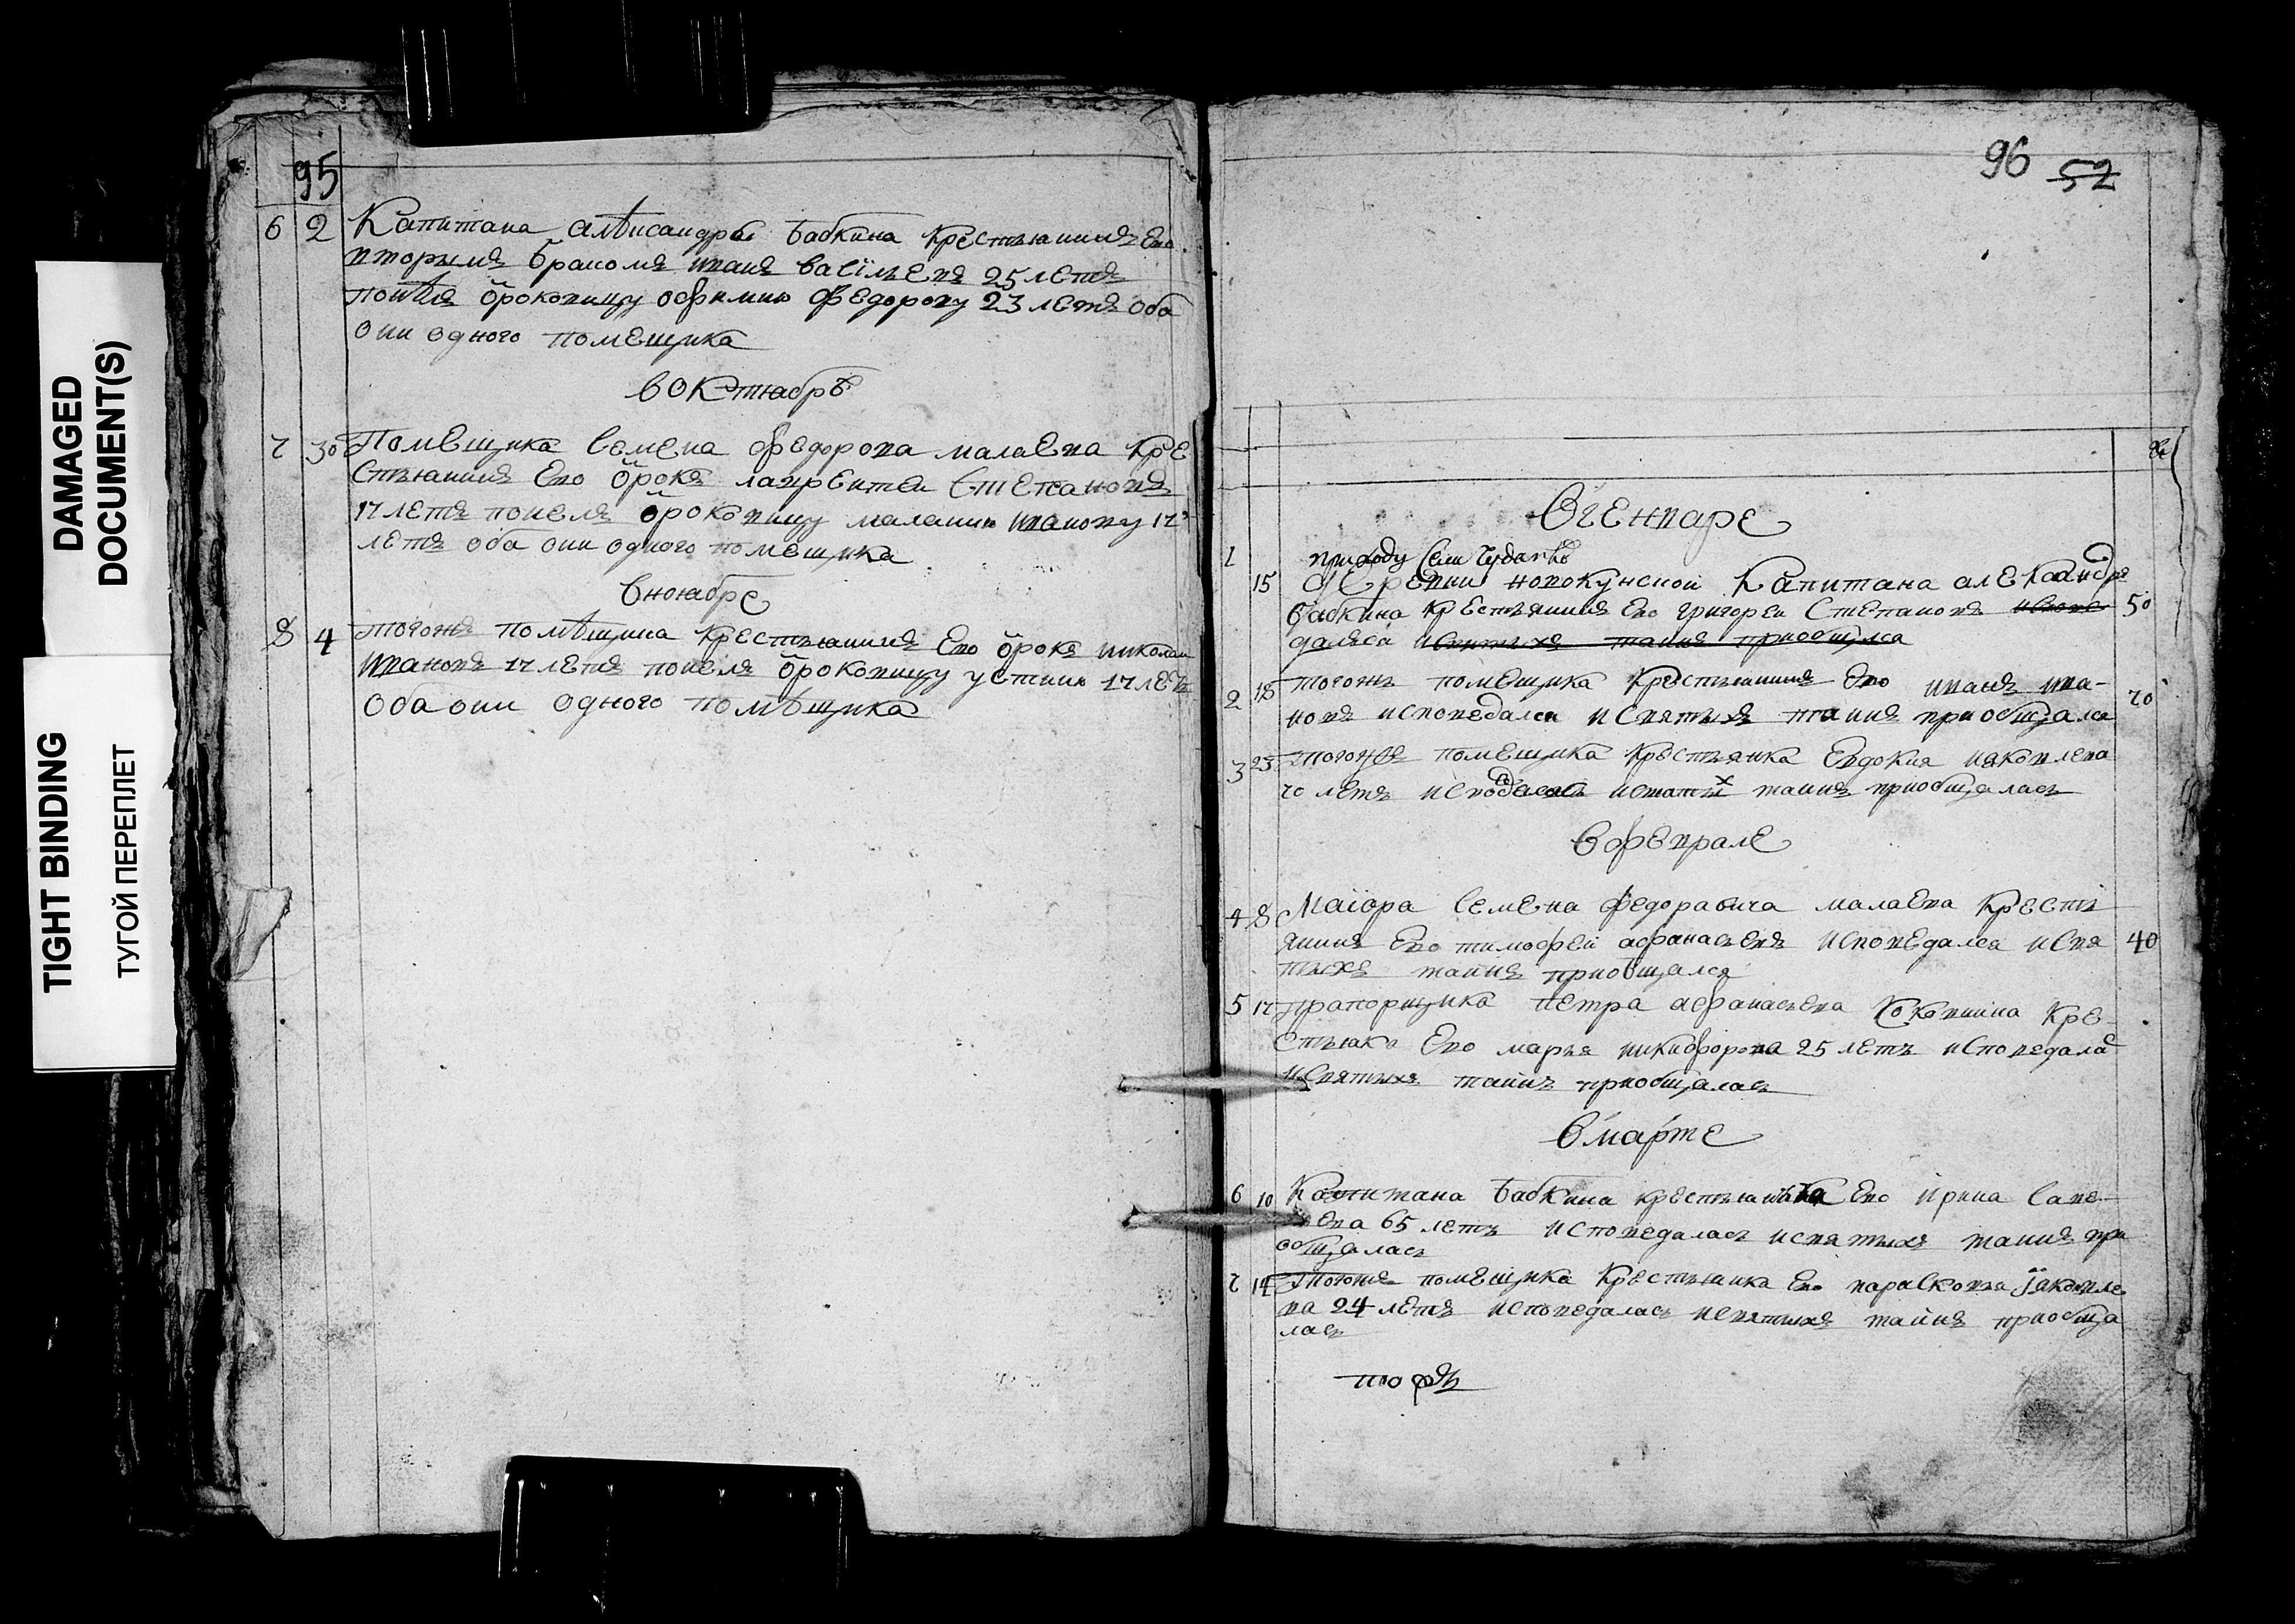 DAMAGED
DOCUMENT(S)
TIGHT BINDING
ТУГОЙ ПЕРЕПЛЕТ
95
6 2 Капитана алѣксандра бабкина крестьянинъ Ево
вторымъ бракомъ иванъ васїльевъ 25 летъ
понѣлъ ѿроковицу офимию Федорову 23 летъ оба
они одного помещика
в октиабрѣ
7 30 Помещика семена федорова малаева кре
стьянинъ Ево ѿрокъ лаврентеи степановъ
17 летъ понелъ ѿроковицу маланию иванову 17
летъ оба они одного помещика
в ноиабре
8 4 тогожъ помѣщика крестьянинъ Ево ѿрокъ николаи
ивановъ 17 летъ понелъ ѿроковицу устинию 17 летъ
оба они одного помѣщика
96 52
В генваре
1 приходу
15 деревни Капитана александра
бабкина крестьянинъ Ево григореи Степановъ испове 50
далъса исвятыхъ таинъ приобщился
2 18 тогожъ помещика крестьянинъ Ево иванъ ива-
новъ исповедался исвятыхъ таинъ приобщался 70
3 23 тогожъ помещика крестьянка Евдокия иаковлева
70 летъ исповедалась исвятых таинъ приобщалась
в феврале
4 8 Маіора семена федоравича малаева кресть
янинъ Ево тимофеи афанасьевъ исповедался исвя 40
тыхъ таинъ приобщался
5 17 прапорщика петра афанасьева Коковкина кре-
стьяка Ево марья никифорова 25 летъ исповедалас
исвятыхъ таинъ приобщалась
в марте
6 10 Капитана бабкина крестьянька Ево ирина саве-
лева 65 летъ исповедалась исвятыхъ таинъ при
общалась
7 14 тогожъ помещика крестьянка Ево парасковья їаковле
ва 24 летъ исповедалась исвятыхъ таинъ приобща
лась